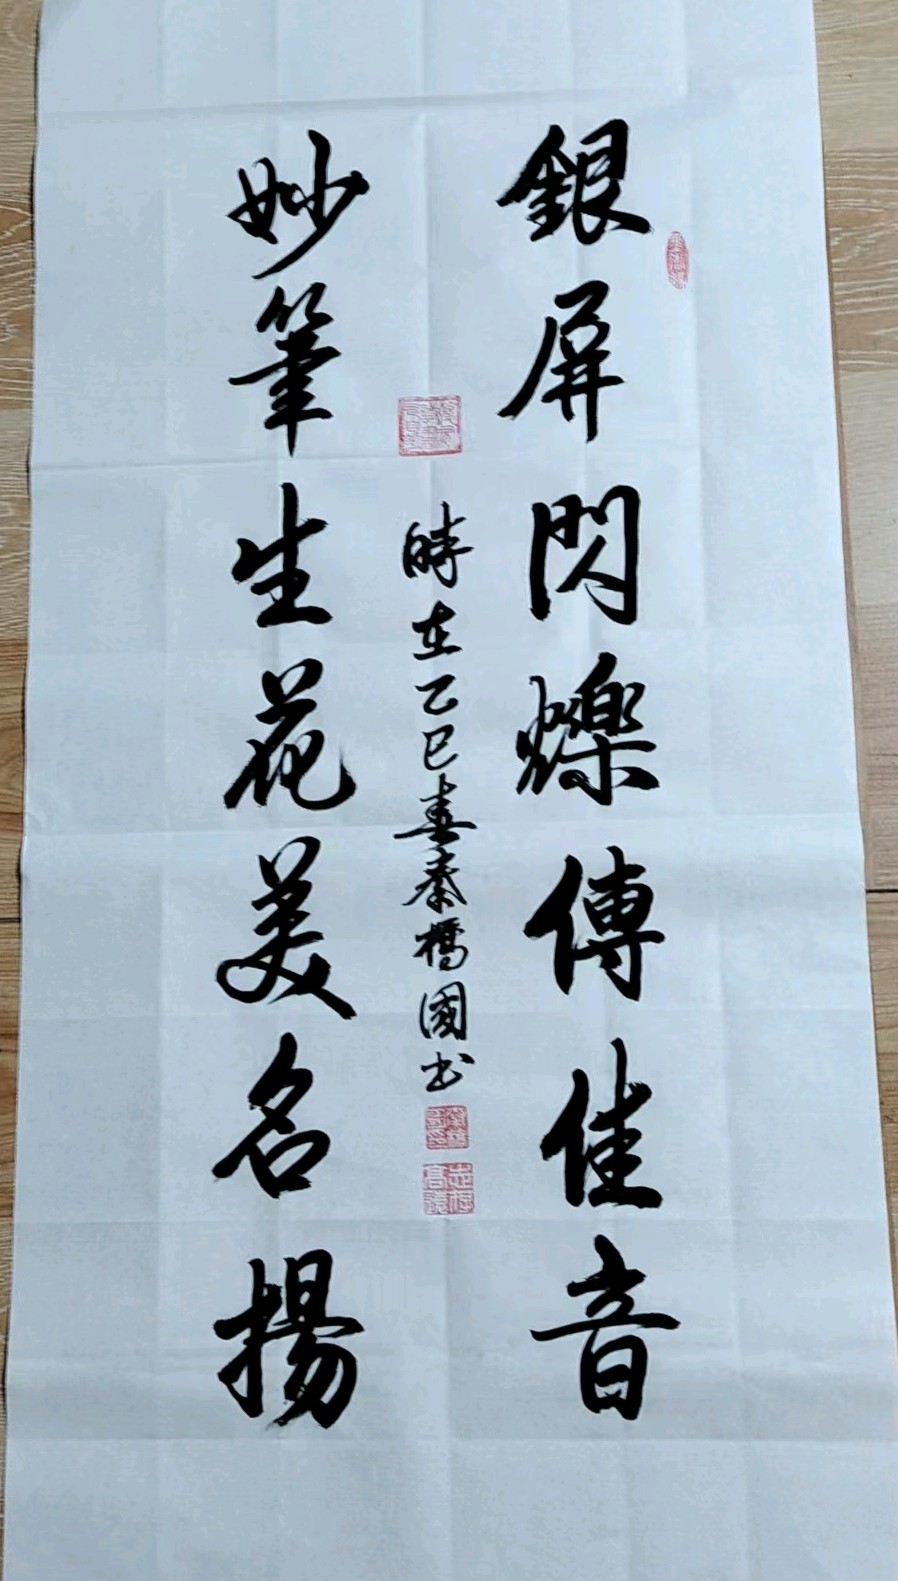 銀屏閃爍傳佳音
妙筆生花美名揚
時在乙巳春秦橋國书
志存高遠